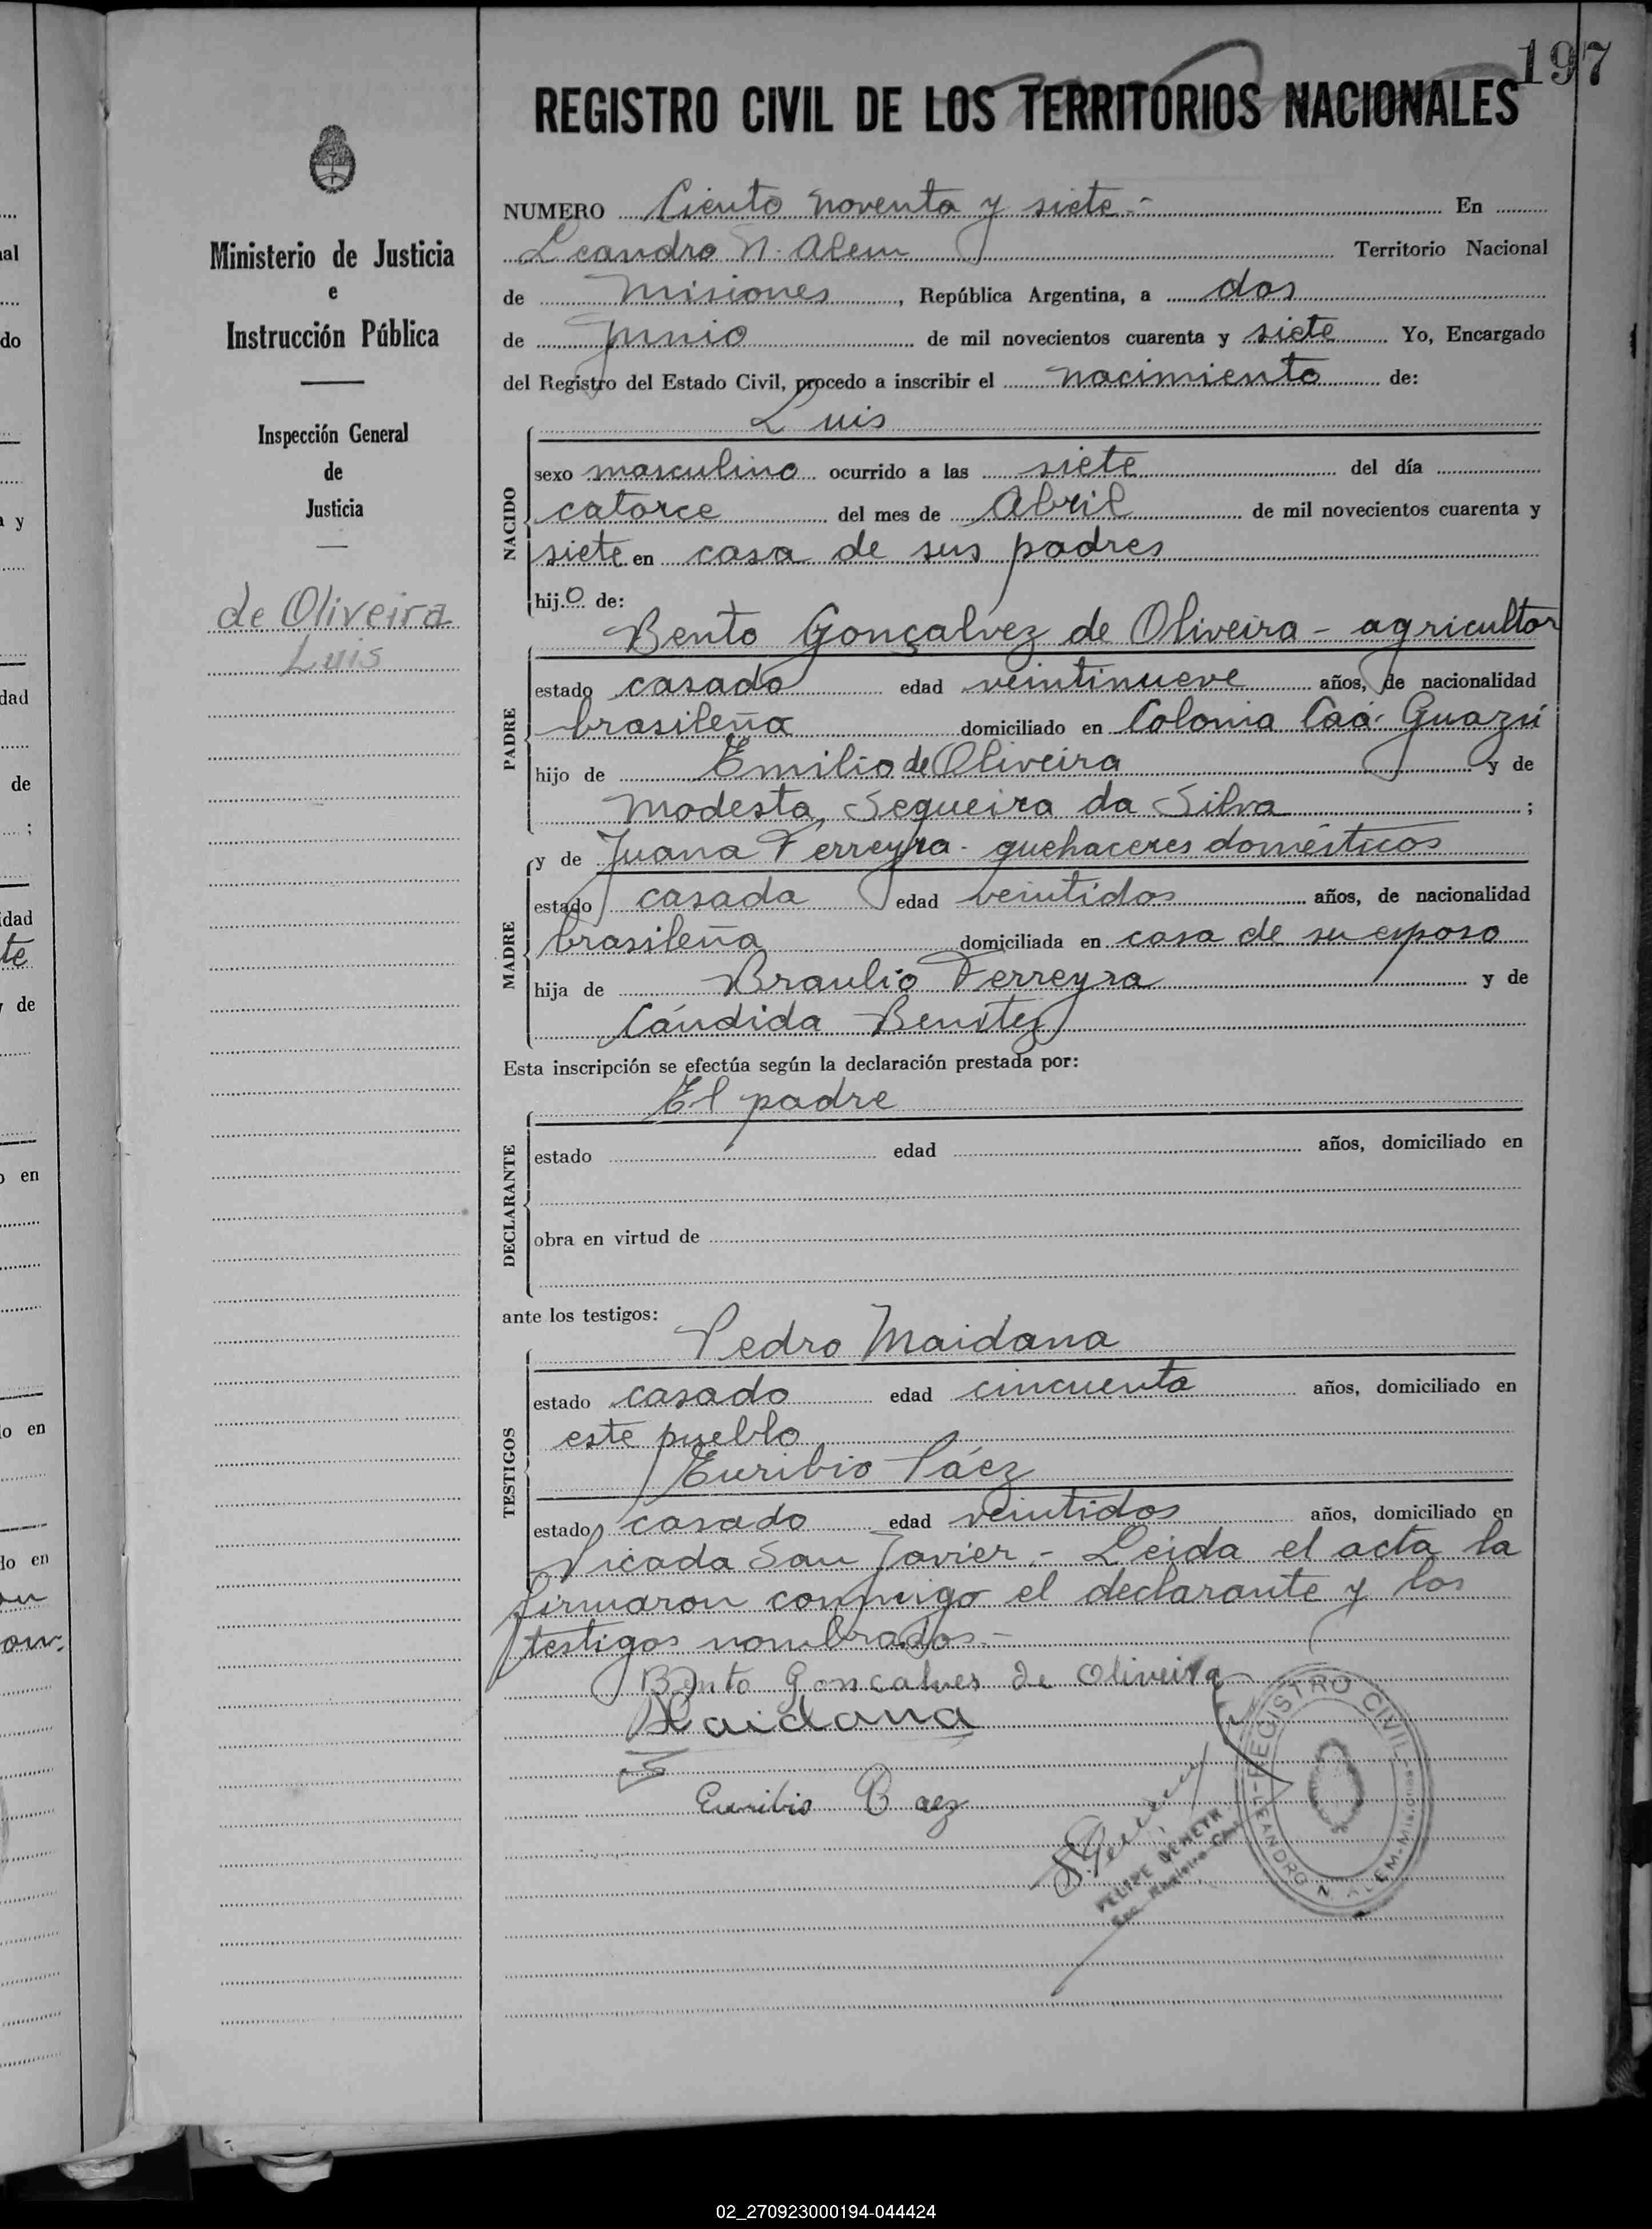 197
REGISTRO CIVIL DE LOS TERRITORIOS NACIONALES
Ministerio de Justicia
e
Instrucción Pública
Inspección General
de
Justicia
de Oliveira
Luis
NUMERO Ciento noventa y siete.- En
Leandro N. Alem Territorio Nacional
de Misiones, República Argentina, a dos
de junio de mil novecientos cuarenta y siete Yo, Encargado
del Registro del Estado Civil, procedo a inscribir el nacimiento de:
Luis
NACIDO
sexo masculino ocurrido a las siete del día
catorce del mes de Abril de mil novecientos cuarenta y
siete en casa de sus padres
hijo de:
Bento Gonçalvez de Oliveira - agricultor
PADRE
estado casado edad veintinueve años, de nacionalidad
brasileña domiciliado en Colonia Caá-Guazú
hijo de Emilio de Oliveira y de
Modesta Sequeira da Silva ;
y de Juana Ferreyra - quehaceres domésticos
MADRE
estado casada edad veintidos años, de nacionalidad
brasileña domiciliada en casa de su esposo
hija de Braulio Ferreyra y de
Cándida Benítez
Esta inscripción se efectúa según la declaración prestada por:
El padre
DECLARANTE
estado edad años, domiciliado en
obra en virtud de
ante los testigos:
Pedro Maidana
TESTIGOS
estado casado edad cincuenta años, domiciliado en
este pueblo
Euribio Páez
estado casado edad veintidos años, domiciliado en
Picada San Javier.- Leida el acta la
firmaron conmigo el declarante y los
testigos nombrados.-
Bento Goncalves de Oliveira
Maidana
Euribio Paez
REGISTRO CIVIL
LEANDRO N. ALEM - MISIONES
FELIPE
02_270923000194-044424
al
do
a y
dad
de
;
idad
te
y de
o en
o en
do en